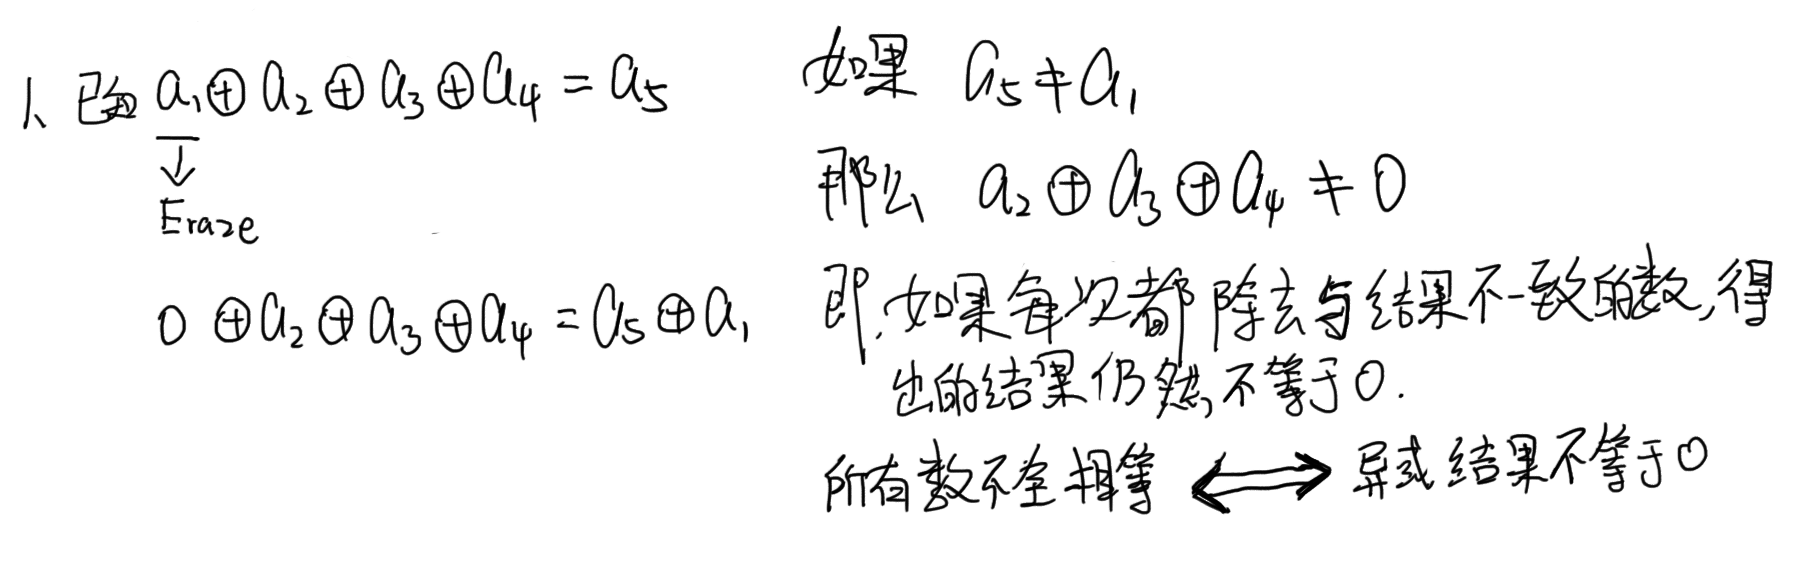 1、已知 a₁⊕a₂⊕a₃⊕a₄=a₅
↓
Eraze
0⊕a₂⊕a₃⊕a₄=a₅⊕a₁
如果 a₅≠a₁
那么 a₂⊕a₃⊕a₄≠0
即,如果每次都除去与结果不一致的数,得
出的结果仍然不等于0.
所有数不全相等 ⟺ 异或结果不等于0